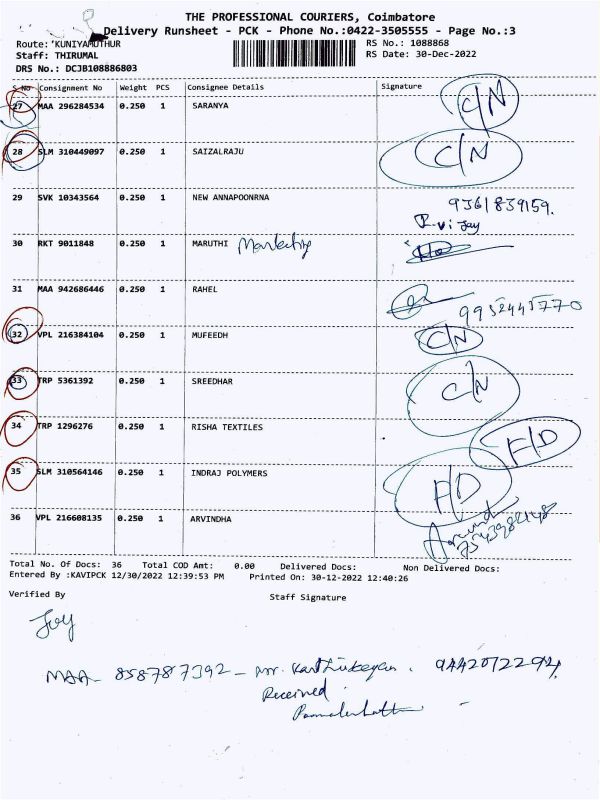 THE PROFESSIONAL COURIERS, Coimbatore
Delivery Runsheet - PCK - Phone No.:0422-3505555 - Page No.:3
Route: KUNIYAMUTHUR RS No.: 1088868
Staff: THIRUMAL RS Date: 30-Dec-2022
DRS No.: DCJB108886803
S.No Consignment No Weight PCS Consignee Details Signature
27 MAA 296284534 0.250 1 SARANYA C/N
28 SLM 310449097 0.250 1 SAIZALRAJU C/N
29 SVK 10343564 0.250 1 NEW ANNAPOORNA 9361839159.
R.vijay
30 RKT 9011848 0.250 1 MARUTHI Marketing
31 MAA 942686446 0.250 1 RAHEL 9952445770
32 VPL 216384104 0.250 1 MUFEEDH C/N
33 TRP 5361392 0.250 1 SREEDHAR C/N
34 TRP 1296276 0.250 1 RISHA TEXTILES F/D
35 SLM 310564146 0.250 1 INDRAJ POLYMERS F/D
36 VPL 216608135 0.250 1 ARVINDHA
Total No. Of Docs: 36 Total COD Amt: 0.00 Delivered Docs: Non Delivered Docs:
Entered By :KAVIPCK 12/30/2022 12:39:53 PM Printed On: 30-12-2022 12:40:26
Verified By Staff Signature
Joy
MAA- 858787392 - Mr. Karthikeyan. 9442072294
Received.